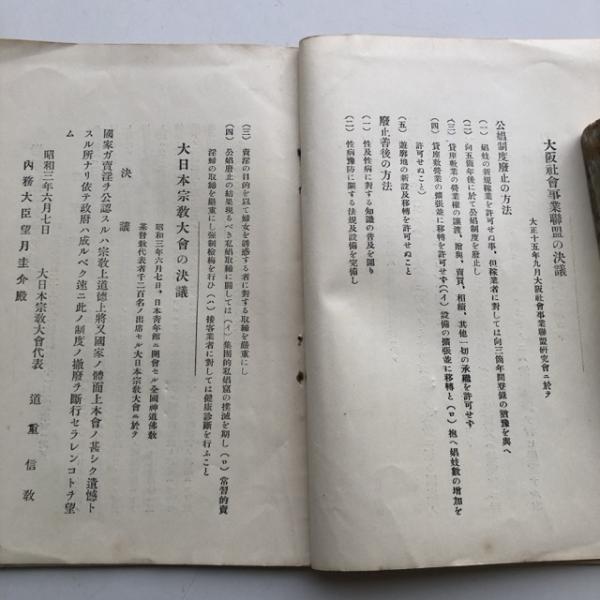 大阪社會事業聯盟の決議
大正十五年九月大阪社會事業聯盟研究會ニ於テ
公娼制度廢止の方法
(一) 娼妓の新規稼業を許可せぬ事、但稼業者に對しては向三箇年間登錄の猶豫を與へ
(二) 向五箇年後に於て公娼制度を廢止し
(三) 貸座敷の營業權の讓渡、贈與、賣買、相續、其他一切の承繼を許可せず
(四) 貸座敷營業の擴張並に移轉を許可せず(イ)設備の擴張並に移轉と(ロ)抱へ娼妓數の增加を
許可せぬこと)
(五) 遊廓地の新設及移轉を許可せぬこと
廢止善後の方法
(一) 性及性病に對する知識の普及を圖り
(二) 性病豫防に關する法規及設備を完備し
(三) 賣淫の目的を以て婦女を誘惑する者に對する取締を嚴重にし
(四) 公娼廢止の結果現るべき私娼取締に關しては(イ)集團的私娼窟の撲滅を期し(ロ)常習的賣
淫婦の取締を嚴重にし强制檢梅を行ひ(ハ)接客業者に對しては健康診斷を行ふこと
大日本宗敎大會の決議
昭和三年六月七日、日本靑年館ニ開會セル全國神道佛敎
基督敎代表者千二百名ノ出席セル大日本宗敎大會ニ於テ
決議
國家ガ賣淫ヲ公認スルハ宗敎上道德上將又國家ノ體面上本會ノ甚シク遺憾ト
スル所ナリ依テ政府ハ成ルベク速ニ此ノ制度ノ撤廢ヲ斷行セラレンコトヲ望
ム
昭和三年六月七日
大日本宗敎大會代表 道重信敎
內務大臣望月圭介殿